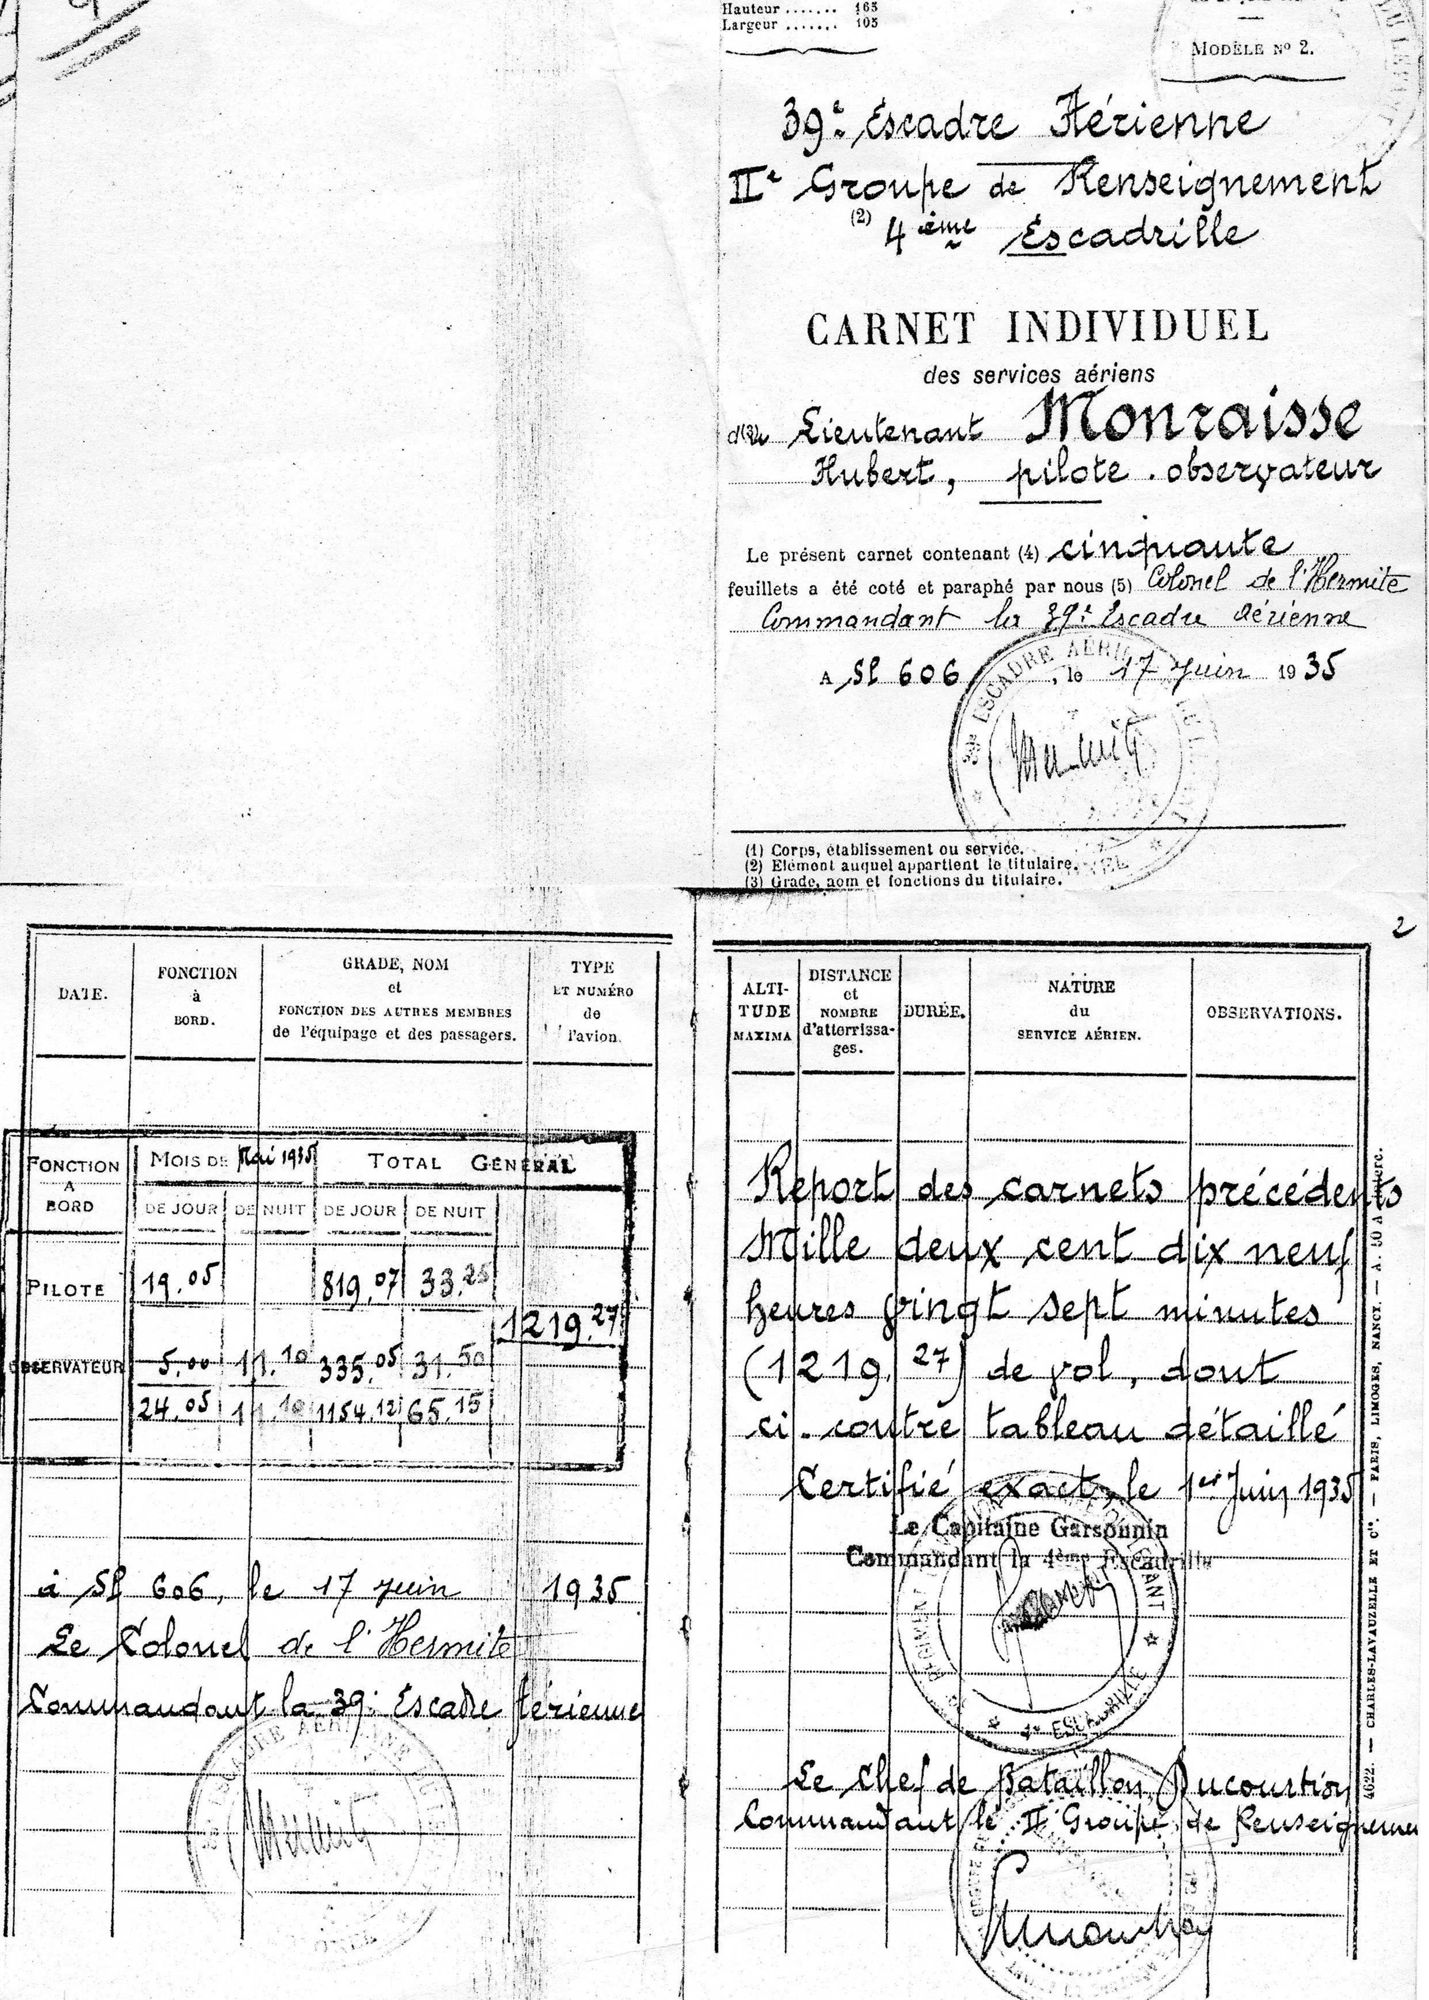 Hauteur ....... 165
Largeur ....... 105
MODÈLE Nº 2.
39e Escadre Aérienne
IIe Groupe de Renseignement
(2) 4ème Escadrille
CARNET INDIVIDUEL
des services aériens
d(3)u Lieutenant Monraisse
Hubert, pilote . observateur
Le présent carnet contenant (4) cinquante
feuillets a été coté et paraphé par nous (5) Colonel de l'Hermite
Commandant la 39e Escadre Aérienne
A SP 606, le 17 Juin 1935
(1) Corps, établissement ou service.
(2) Elément auquel appartient le titulaire.
(3) Grade, nom et fonctions du titulaire.
2
DATE.
FONCTION
à
BORD.
GRADE, NOM
et
FONCTION DES AUTRES MEMBRES
de l'équipage et des passagers.
TYPE
ET NUMÉRO
de
l'avion.
FONCTION
A
BORD
MOIS DE Mai 1935
TOTAL GÉNÉRAL
DE JOUR DE NUIT DE JOUR DE NUIT
PILOTE 19.05 819.07 33.25
1219.27
OBSERVATEUR 5.00 11.10 335.05 31.50
24.05 11.10 1154.12 65.15
à SP 606, le 17 juin 1935
Le Colonel de l'Hermite
Commandant la 39e Escadre Aérienne
ALTI-
TUDE
MAXIMA
DISTANCE
et
NOMBRE
d'atterrissa-
ges.
DURÉE.
NATURE
du
SERVICE AÉRIEN.
OBSERVATIONS.
Report des carnets précédents
Mille deux cent dix neuf
heures vingt sept minutes
(1219.27) de vol, dont
ci-contre tableau détaillé
Certifié exact, le 1er Juin 1935
Le Capitaine Garsonnin
Commandant la 4ème Escadrille
Le Chef de Bataillon
Commandant le II Groupe de Renseigneme
4622. — CHARLES-LAVAUZELLE ET Cie. — PARIS, LIMOGES, NANCY.